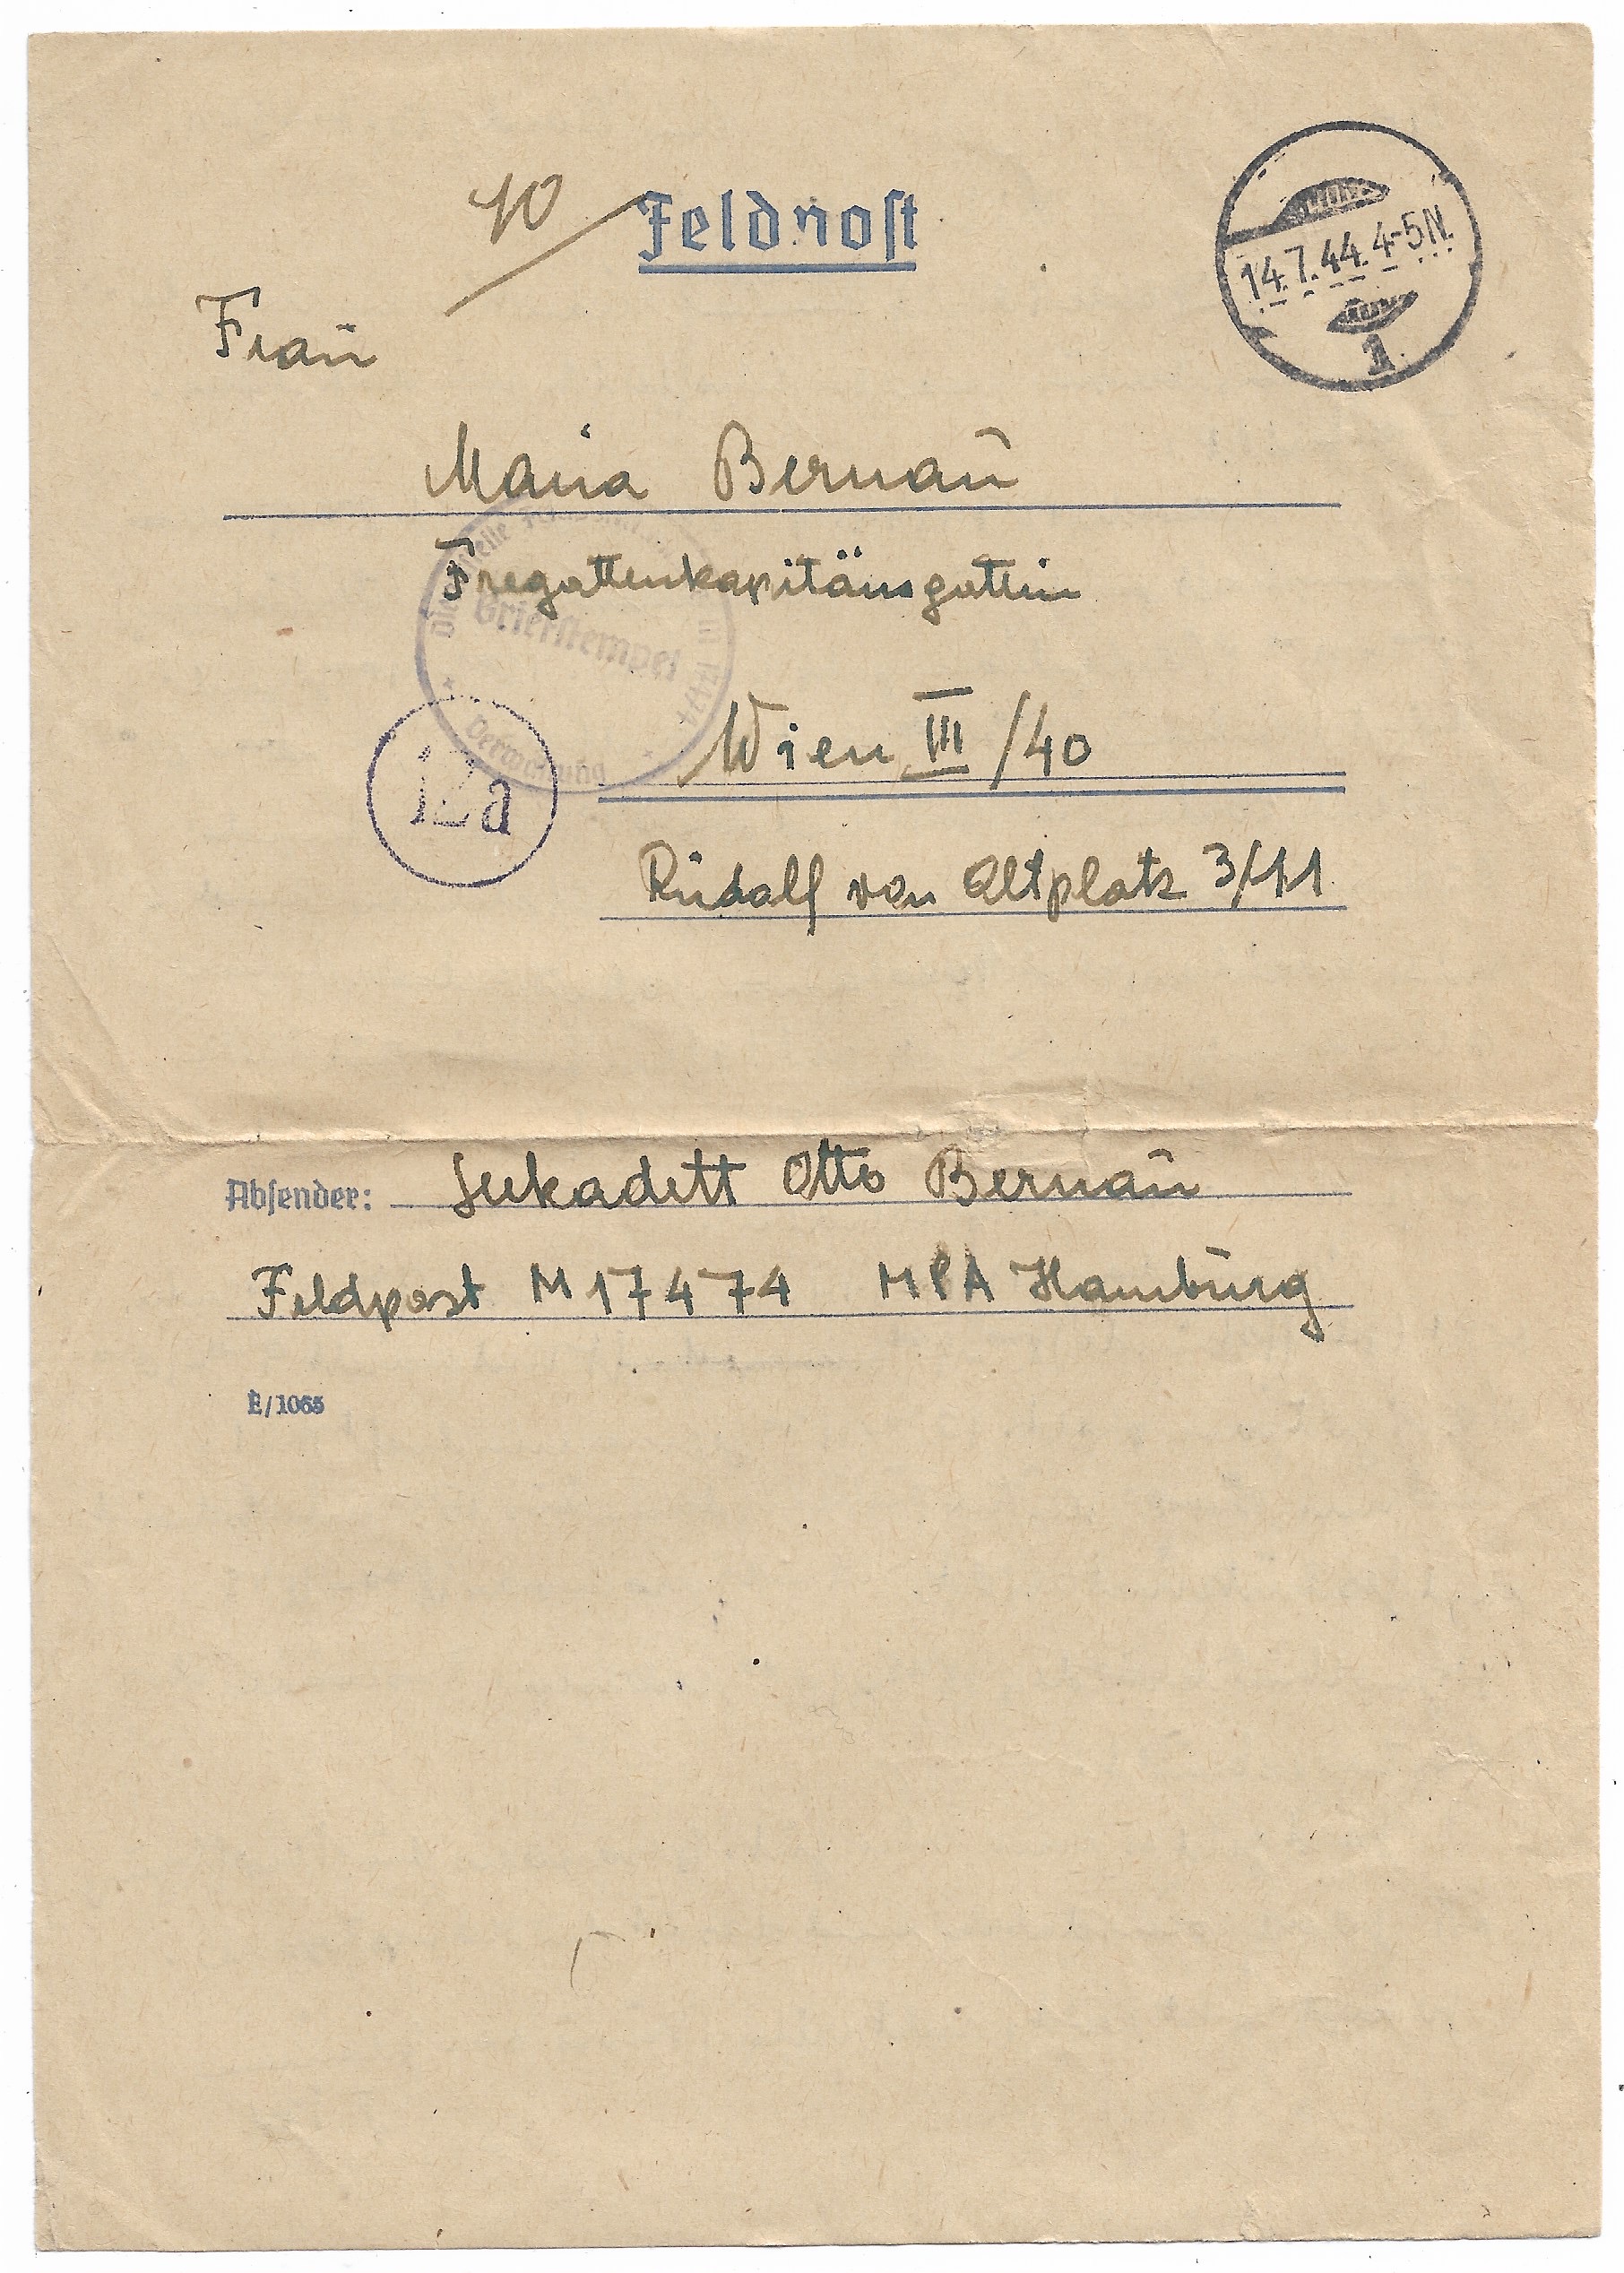 10
Feldpost
14.7.44.4-5N.
1
Frau
Maria Bernau
Fregattenkapitänsgattin
Briefstempel
Verwaltung
Wien III/40
12a
Rudolf von Altplatz 3/11
Absender: Seekadett Otto Bernau
Feldpost M 17474 MPA Hamburg
E/1065